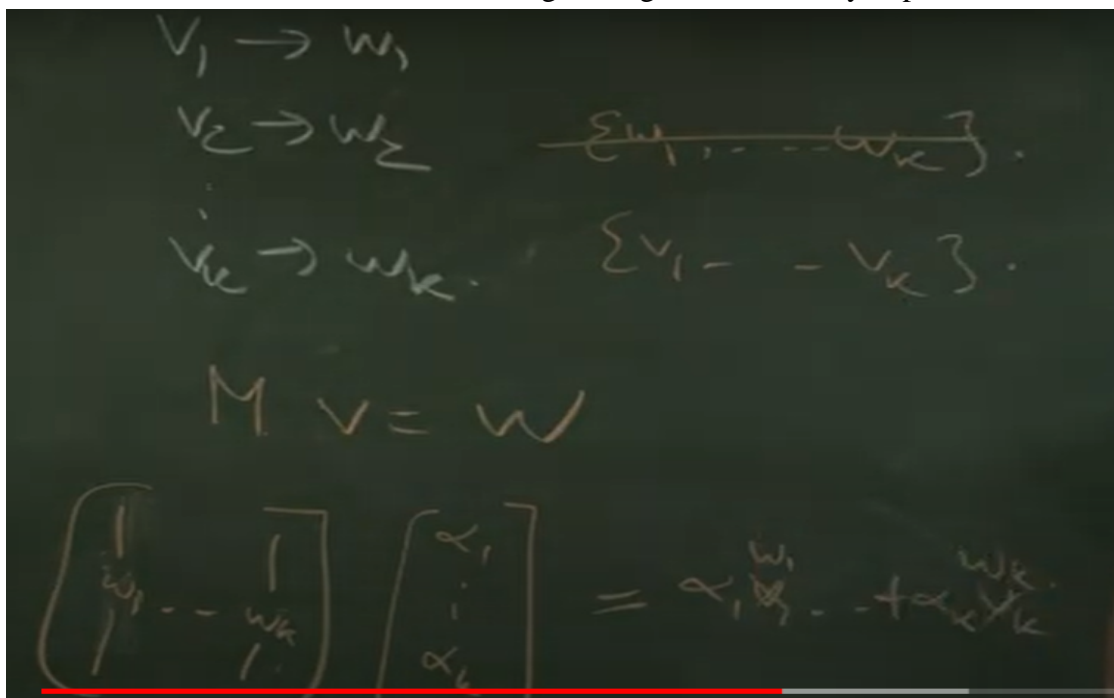 V₁ → W₁
V₂ → W₂ {W₁, - - - W_k}.
⋮
V_k → W_k. {V₁ - - V_k}.
M V = W
[W₁ - - W_k] [α₁ ⋮ α_k] = α₁ W₁ - - + α_k W_k